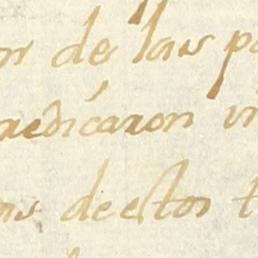 or de las p
redicaron in
ons de estos t